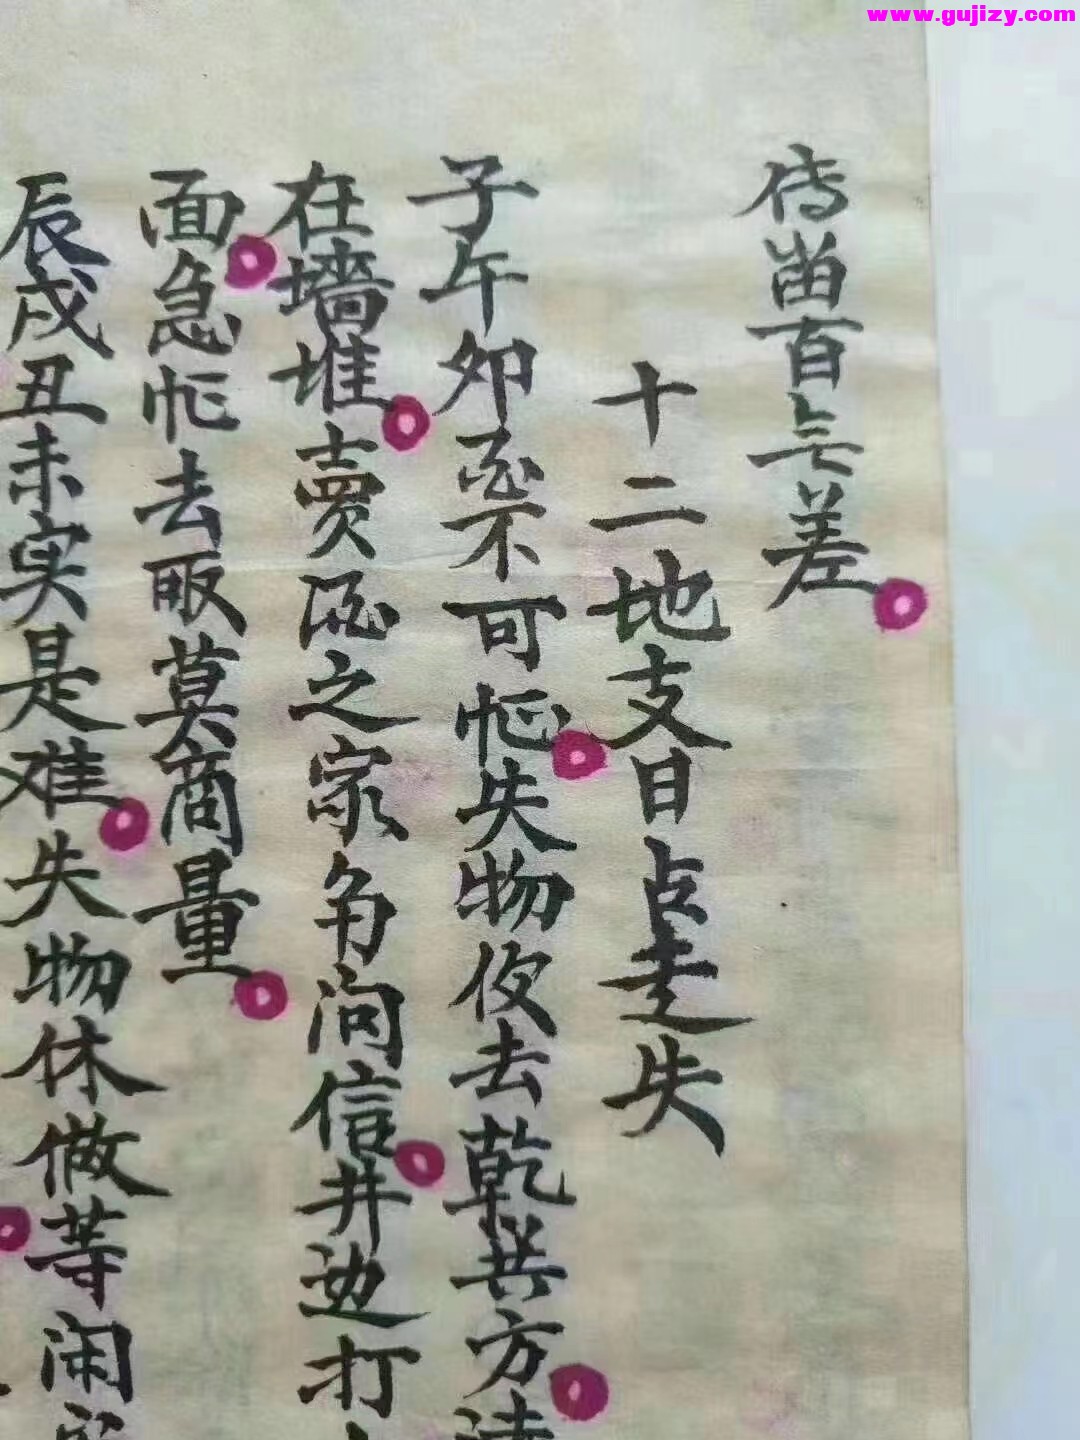 www.gujizy.com
待留百无差
十二地支日占走失
子午卯酉不可忙失物夜去乾兴方
在墙堆卖酒之家舟问信井边打
面急忙去取莫商量
辰戌丑未实是难失物休做等闲